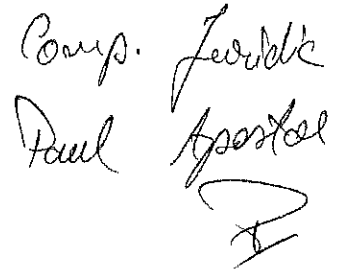 Comp. Juridic
Paul Apostol